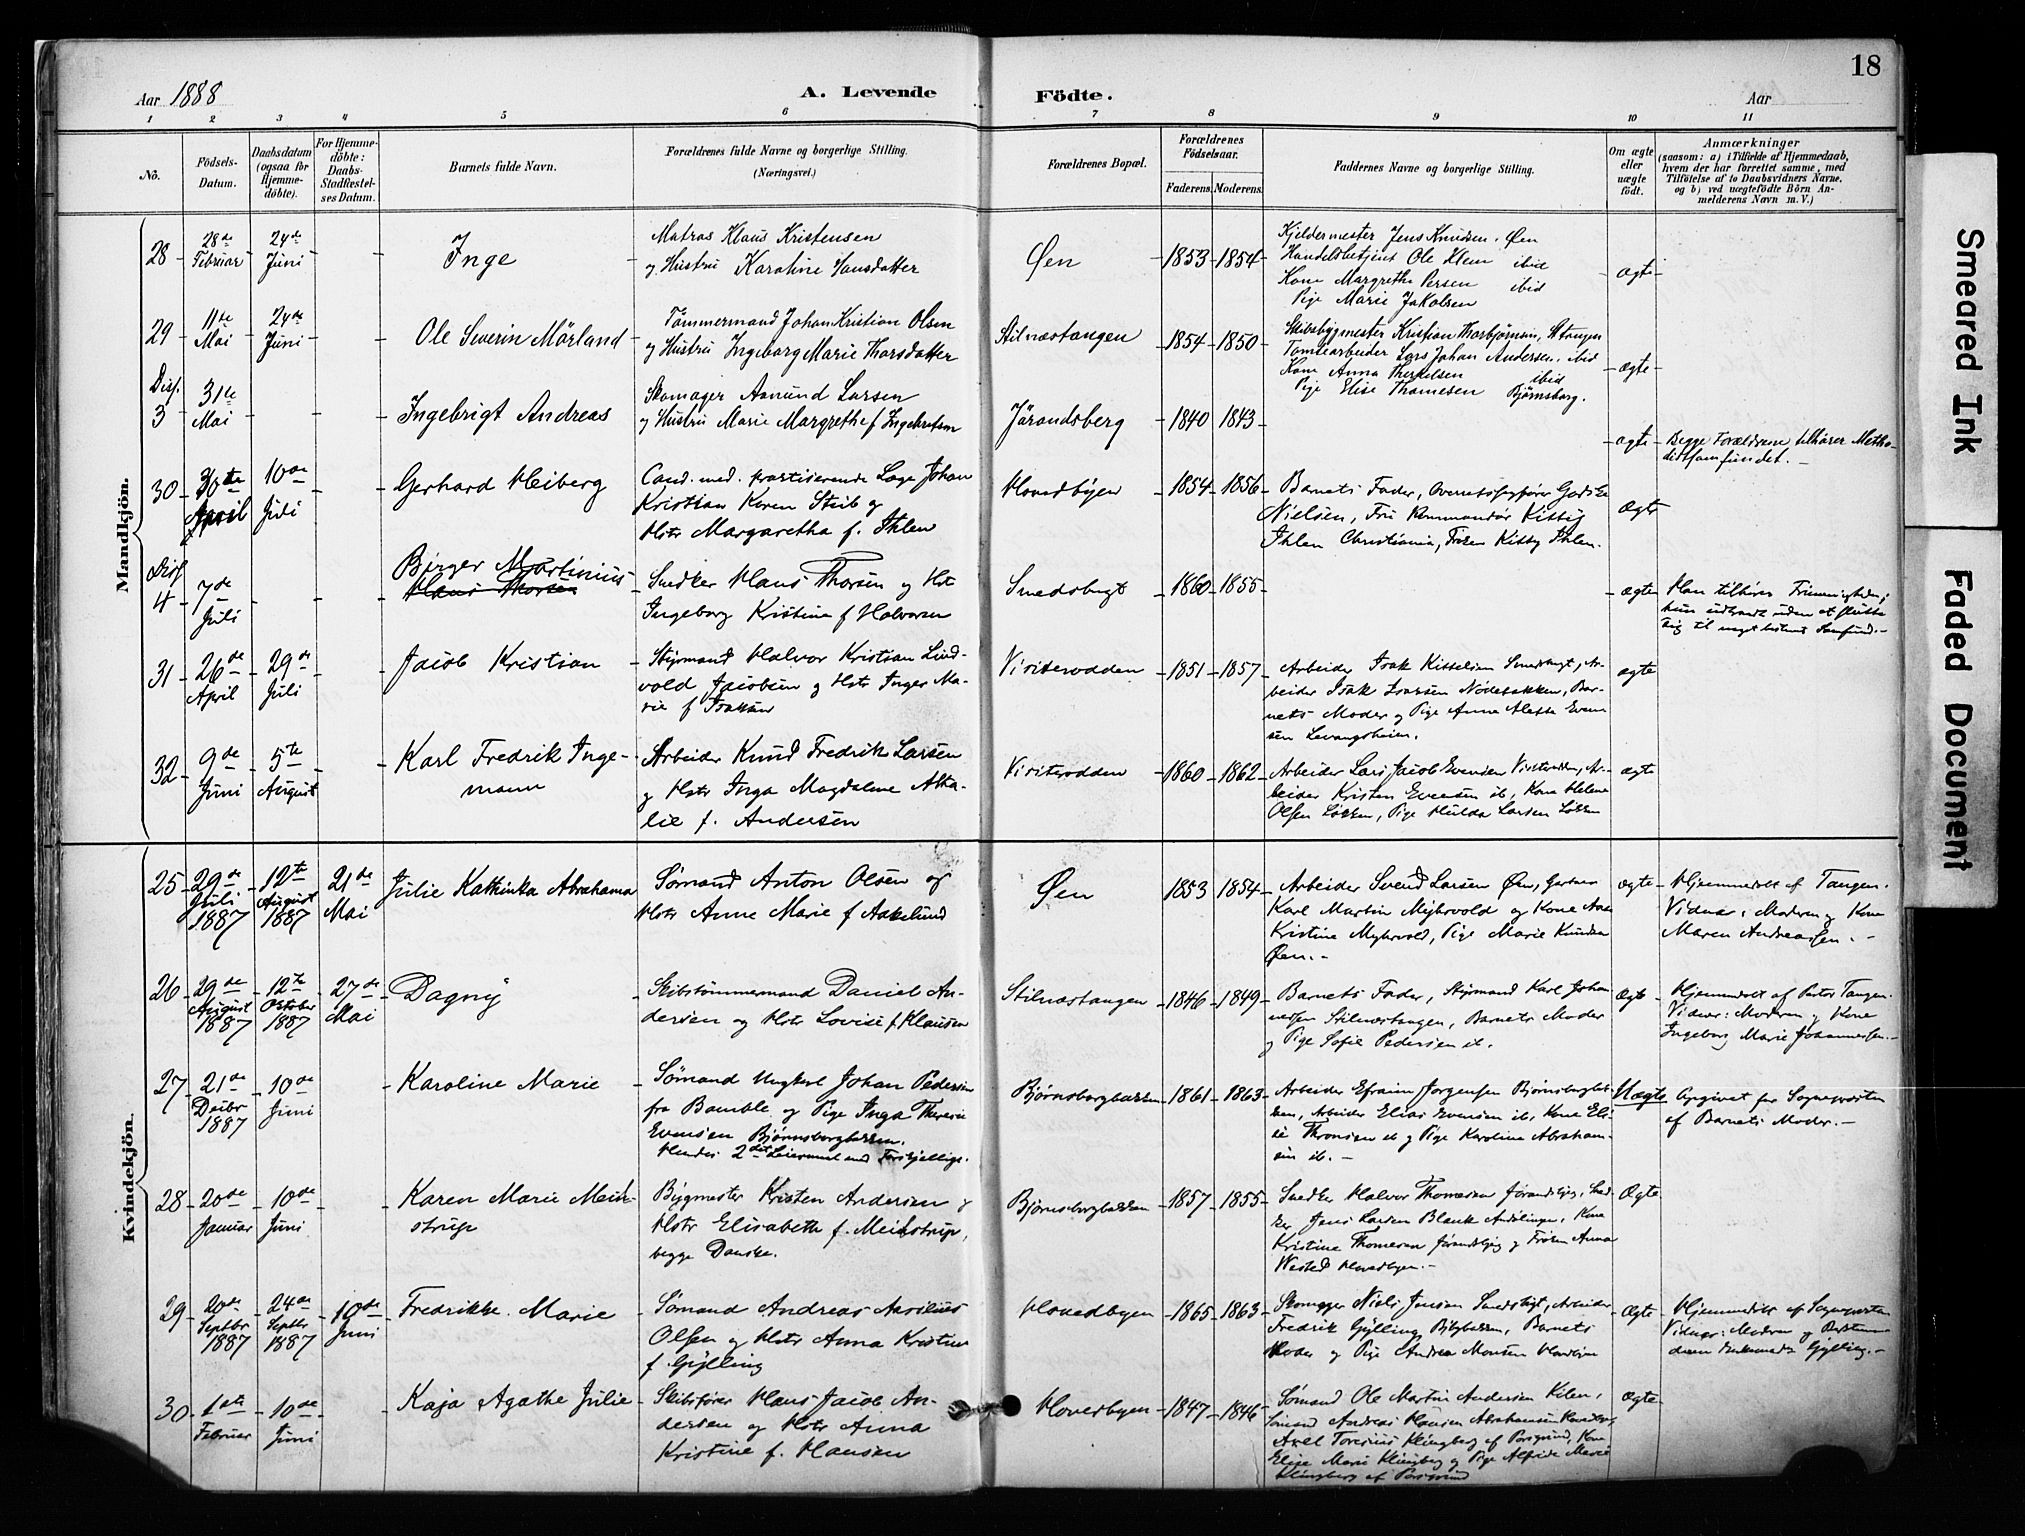 18
Aar 1888
A. Levende
Födte.
Aar
1 2 3 4 5 6 7 8 9 10 11
No.
Födsels-
Datum.
Daabsdatum
(ogsaa for
Hjemme-
döbte).
For Hjemme-
döbte:
Daabs-
Stadfæstel-
ses Datum.
Barnets fulde Navn.
Forældrenes fulde Navne og borgerlige Stilling.
(Næringsvei.)
Forældrenes Bopæl.
Forældrenes
Födselsaar.
Faderens. Moderens.
Faddernes Navne og borgerlige Stilling.
Om ægte
eller
uægte
födt.
Anmærkninger
(saasom: a) i Tilfælde af Hjemmedaab,
hvem der har forrettet samme, med
Tilföielse af to Daabsvidners Navne.
og b) ved uægtefödte Börn An-
melderens Navn m. V.)
Mandkjön.
28 28de Februar 24de Juni Inge
Matros Klaus Kristensen
og Hustru Karoline Hansdatter
Øen 1853 1854
Kjeldermester Jens Knudsen. Øen
Handelsbetjent Ole Klem ibid
Kone Margrethe Persen ibid
Pige Marie Jakobsen
ægte
29 11te Mai 24de Juni Ole Severin Mörland
Tömmermand Johan Kristian Olsen
og Hustru Ingeborg Marie Thorsdatter
Stilnæstangen 1854 1850
Skibsbygmester Kristian Thorbjørnsen, Sttangen
Tomtearbeider Lars Johan Andersen. ibid
Kone Anna Therkelsen ibid
Pige Elise Thomesen Bjørnsborg.
ægte
Diss. 3 31te Mai Ingebrigt Andreas
Skomager Asmund Larsen
og Hustru Marie Margrethe f Ingebretsen
Jårandsberg 1840 1843
ægte
Begge Forældrene tilhører Metho-
distsamfundet.
30 30te April 10de Juli Gerhard Heiberg
Cand. med. praktiserende Læge Johan
Kristian Koren Stub og
Hstr Margaretha f. Ihlen
Hovedbyen 1854 1856
Barnets Fader,
Nielsen, Fru Kommandør Kitty
Ihlen Christiania, Frøken Kitty Ihlen.
Ægte
Diss 4 7de Juli Birger Martinius
Hans Thorsen
Snedker Hans Thorsen og Hst
Ingeborg Kristine f Halvorsen
Smedsbugt 1860 1855
ægte
Han tilhører Frimenigheden;
hun udtraadt uden at slutte
sig til noget bestemt Samfund.
31 26de April 29de Juli Jacob Kristian
Styrmand Halvor Kristian Lind-
vold Jacobsen og Hstr Inger Ma-
rie f Isaksen
Visiterodden 1851 1857
Arbeider Isak Kittelsen Smedsbugt, Ar-
beider Isak Isaksen Nødebakken, Bar-
nets Moder og Pige Anne Alette Even
sen Levangsheien.
ægte
32 9de Juni 5te August Karl Fredrik Inge-
mann
Arbeider Knud Fredrik Larsen
og Hstr Inga Magdalene Atha-
lie f. Andersen
Visiterodden 1860 1862
Arbeider Lars Jacob Evensen Visiterodden, Ar-
beider Kristen Evensen ib, Kone Helene
Olsen Løkken, Pige Hulda Larsen Løkken
ægte
Kvindekjön.
25 29de Juli 1887 12te August 1887 21de Mai Julie Kathinka Abrahama
Sømand Anton Olsen og
Hstr Anne Marie f Aakelund
Øen 1853 1854
Arbeider Svend Larsen Øen, Gartner
Karl Martin Myhrvold og Kone Anne
Kristine Myhrvold, Pige Marie Knudsen
Øen.
ægte
Hjemmedøbt af Tangen.
Vidner: Moderen og Kone
Maren Andreassen.
26 29de August 1887 12te October 1887 27de Mai Dagny
Skibstømmermand Daniel An-
dersen og Hstr Lovise f. Klausen
Stilnæstangen 1846 1849
Barnets Fader, Styrmand Karl Johan
nessen Stilnæstangen, Barnets Moder
og Pige Sofie Pedersen ib.
Ægte
Hjemmedøbt af Pastor Tangen.
Vidner: Moderen og Kone
Ingeborg Marie Johannessen.
27 21de Decbr 1887 10de Juni Karoline Marie
Sømand Ungkarl Johan Pedersen
fra Bamble og Pige Inga Therese
Evensen Bjørnsborgbakken.
Hendes 2det Leiermaal med Forskjellige.
Bjørnsborgbakken 1861 1863
Arbeider Efraim Jørgensen Bjørnsborgbak-
ken, Arbeider Elias Evensen ib, Kone Eli-
se Thronsen ib og Pige Karoline Abraham-
sen ib.
Uægte
Opgivet for Sognepresten
af Barnets Moder.
28 20de Januar 10de Juni Karen Marie Meid-
strup
Bygmester Kristen Andersen og
Hstr Elisabeth f. Meidstrup,
begge Danske.
Bjørnsborgbakken 1857 1855
Snedker Halvor Thomesen Jårandsbjg, Sned-
ker Jens Larsen Blank, Kone
Kristine Thomesen Jårandsbjg og Frøken Anna
Wested Hovedbyen.
Ægte
29 20de Septbr 1887 24de Septbr 1887 10de Juni Fredrikke Marie
Sømand Andreas Aurilius
Olsen og Hstr Anna Kristine
f. Gylling
Hovedbyen 1865 1863
Skomager Niels Jensen Smedsbugt, Arbeider
Fredrik Gylling, Barnets
Moder og Pige Andrea Monsen Hovedbyen
Ægte
Hjemmedøbt af Sognepresten
Vidner: Moderen og
Gylling.
30 1ste Februar 10de Juni Kaja Agathe Julie
Skibsfører Hans Jacob An-
dersen og Hstr Anna
Kristine f. Hansen
Hovedbyen 1847 1846
Sømand Ole Martin Andersen Kilen,
Sømand Andreas Hansen Abrahamsen
Axel Toresius Klingberg af Porsgrund, Kone
Elise Marie Klingberg og Pige Alfride Marie
Klingberg af Porsgrund
Ægte
Smeared Ink
Faded Document